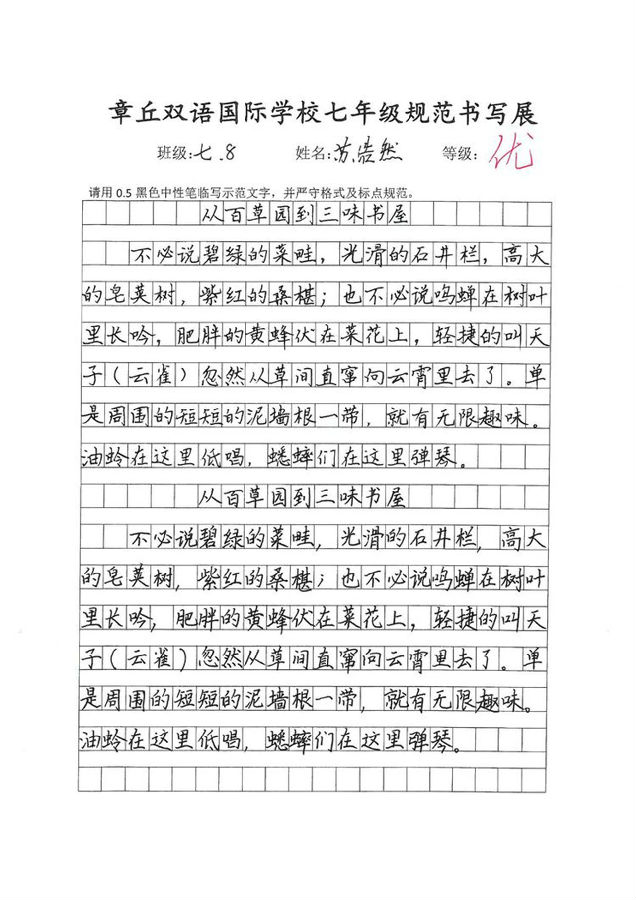 章丘双语国际学校七年级规范书写展
班级:七.8 姓名:苏浩然 等级:优
请用 0.5 黑色中性笔临写示范文字，并严守格式及标点规范。
从百草园到三味书屋
不必说碧绿的菜畦，光滑的石井栏，高大
的皂荚树，紫红的桑椹；也不必说鸣蝉在树叶
里长吟，肥胖的黄蜂伏在菜花上，轻捷的叫天
子（云雀）忽然从草间直窜向云霄里去了。单
是周围的短短的泥墙根一带，就有无限趣味。
油蛉在这里低唱，蟋蟀们在这里弹琴。
从百草园到三味书屋
不必说碧绿的菜畦，光滑的石井栏，高大
的皂荚树，紫红的桑椹；也不必说鸣蝉在树叶
里长吟，肥胖的黄蜂伏在菜花上，轻捷的叫天
子（云雀）忽然从草间直窜向云霄里去了。单
是周围的短短的泥墙根一带，就有无限趣味。
油蛉在这里低唱，蟋蟀们在这里弹琴。